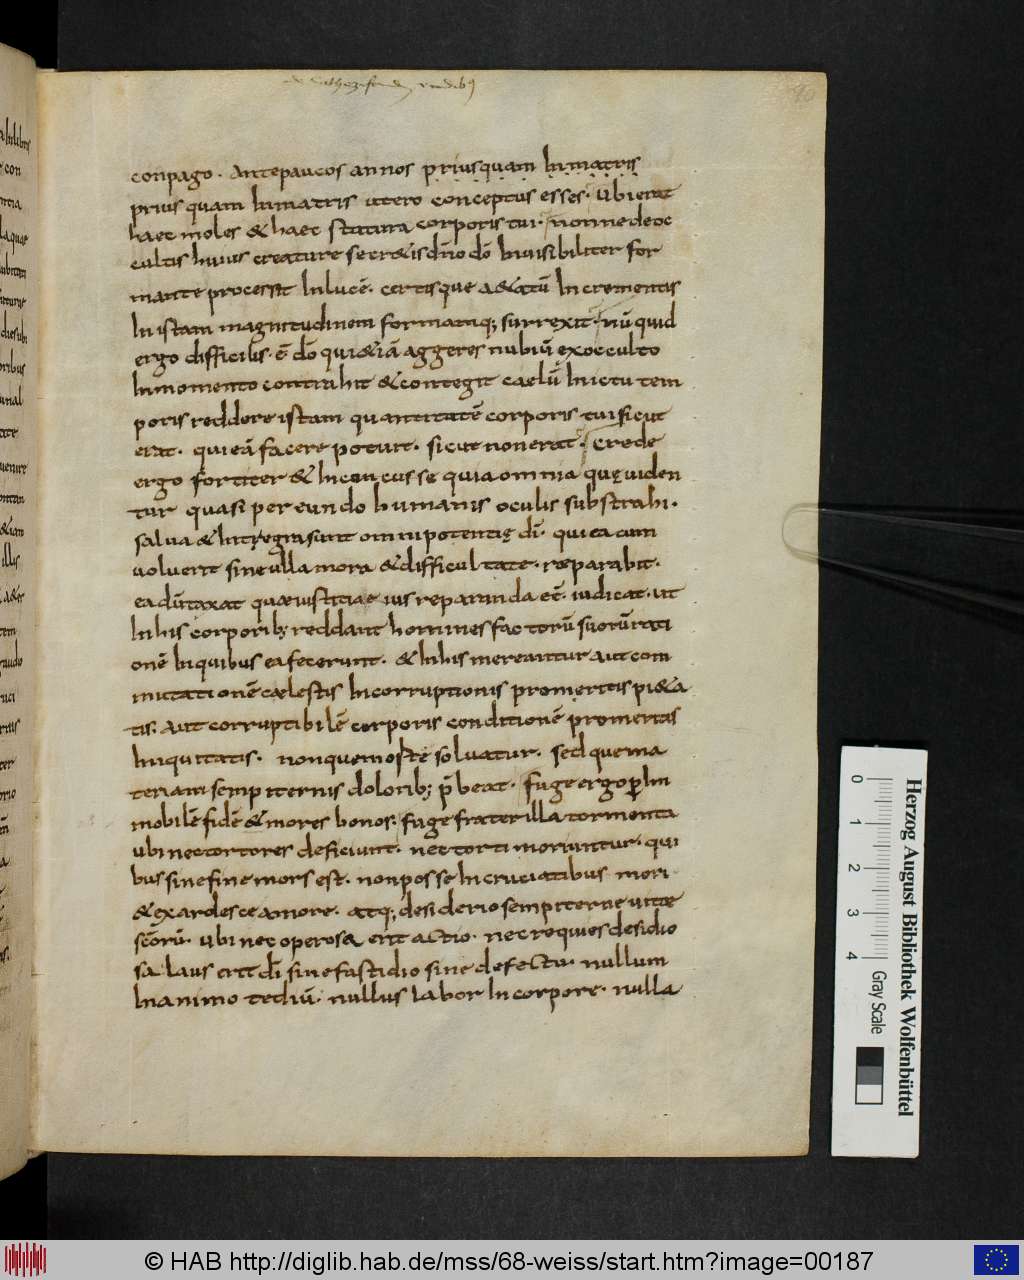 conpago. Ante paucos annos priusquam In matris
prius quam In matris utero conceptus esses. Ubi erat
haec moles & haec statura corporis tui. nonne de oc
cultis huius creature secr&is dño dō Inuisibiliter for
mante processit In lucē. certisque a&atū Incrementis
In istam magnitudinem formamq; surrexit. nū quid
ergo difficilis. ē dō qui &iā aggeres nubiū ex occulto
In momento contrahit & contegit caelū In ictu tem
poris reddere istam quantitatē corporis tui sicut
erat. qui eā facere potuit. sicut non erat. Crede
ergo fortiter & Inconcusse quia omnia quę uiden
tur quasi pereundo humanis oculis substrahi.
salua & Intęgra sunt omnipotentię dī. qui ea cum
uoluerit sine ulla mora & difficultate. reparabit.
ea dūtaxat quae iustitiae ius reparanda eē. iudicat. ut
In his corporib; reddant homines factorū suorū rati
onē In quibus ea fecerunt. & In his mereantur aut com
mutationē caelestis Incorruptionis pro meritis pi&a
tis. Aut corruptibilē corporis conditionē pro meritis
Iniquitatis. non quem oste soluatur. sed que ma
teriam sempiternis dolorib; p̄beat. fuge ergo p In
mobilē fidē & mores bonos. fuge frater illa tormenta
ubi nec tortores deficiunt. nec torti moriuntur. qui
bus sine fine mors est. non posse In cruciatibus mori
& exardesce amore. atq; desiderio sempiterne uitae
scōrū. ubi nec operosa erit actio. nec requies desidio
sa. laus erit dī sine fastidio sine defectu. nullum
In animo tediū. nullus labor In corpore. nulla
0 1 2 3 4
Gray Scale
Herzog August Bibliothek Wolfenbüttel
© HAB http://diglib.hab.de/mss/68-weiss/start.htm?image=00187